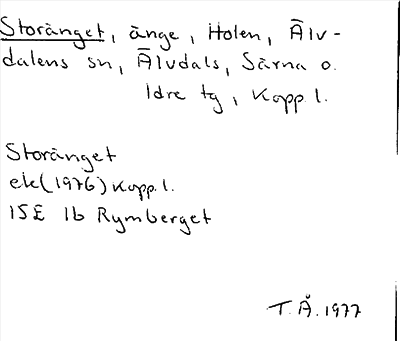 Storänget, änge, Holen, Älv-
dalens sn, Älvdals, Särna o.
Idre tg, Kopp l.
Storänget
ek (1976) Kopp. l.
15E 1b Rymberget
T.Å. 1977